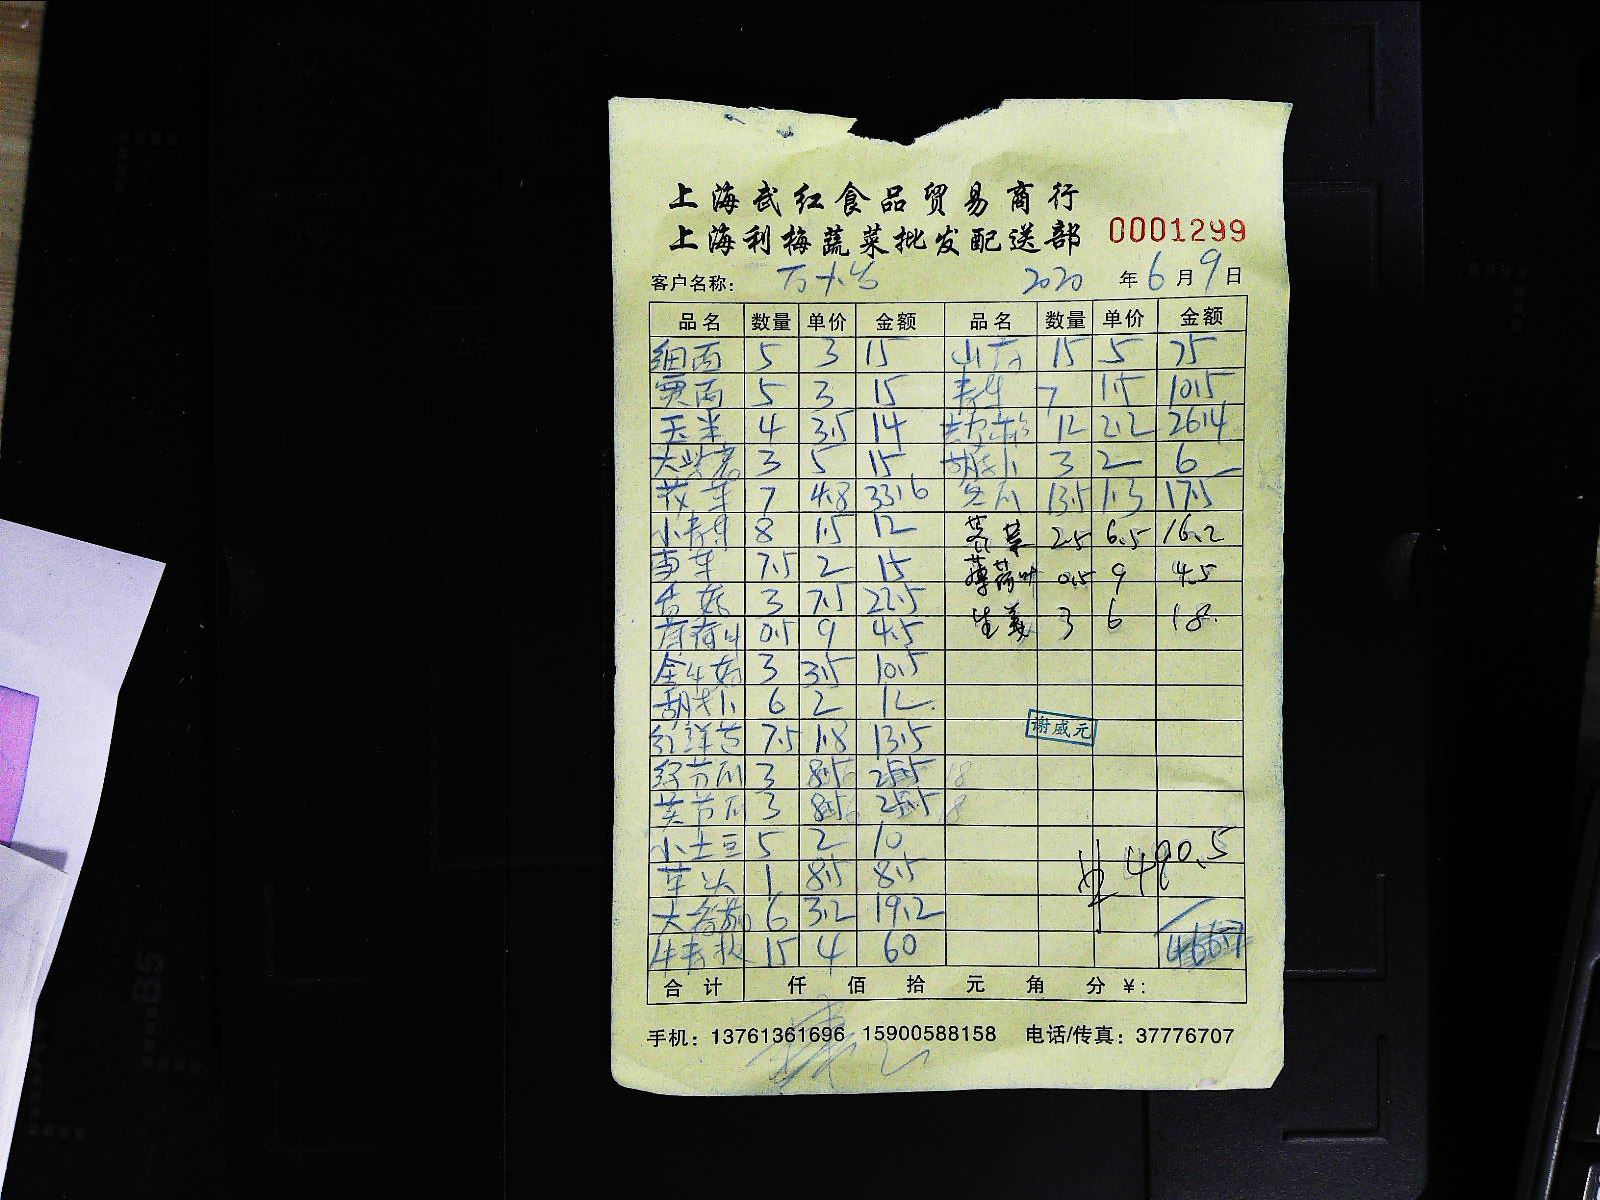 上海武红食品贸易商行
上海利梅蔬菜批发配送部 0001299
客户名称： 2020 年 6 月 9 日
品名 数量 单价 金额 品名 数量 单价 金额
细面 5 3 15 15 5 75
宽面 5 3 15 青生 7 1.5 10.5
玉米 4 3.5 14 12 2.2 26.4
3 5 15 胡卜 3 2 6
7 4.8 33.6 13.5 1.3 17.5
小青 8 1.5 12 菜 2.5 6.5 16.2
7.5 2 15 薄荷叶 0.5 9 4.5
香菇 3 7.5 22.5 生姜 3 6 18.
荷叶 0.5 9 4.5
金 菇 3 3.5 10.5
胡卜 6 2 12
红洋 7.5 1.8 13.5
3 8.5 25.5 18
3 8.5 25.5 18
小土豆 5 2 10
草头 1 8.5 8.5
大 6 3.2 19.2
15 4 60
谢威元
¥ 490.5
466.7
合计 仟 佰 拾 元 角 分 ¥：
手机：13761361696 15900588158 电话/传真：37776707
B5